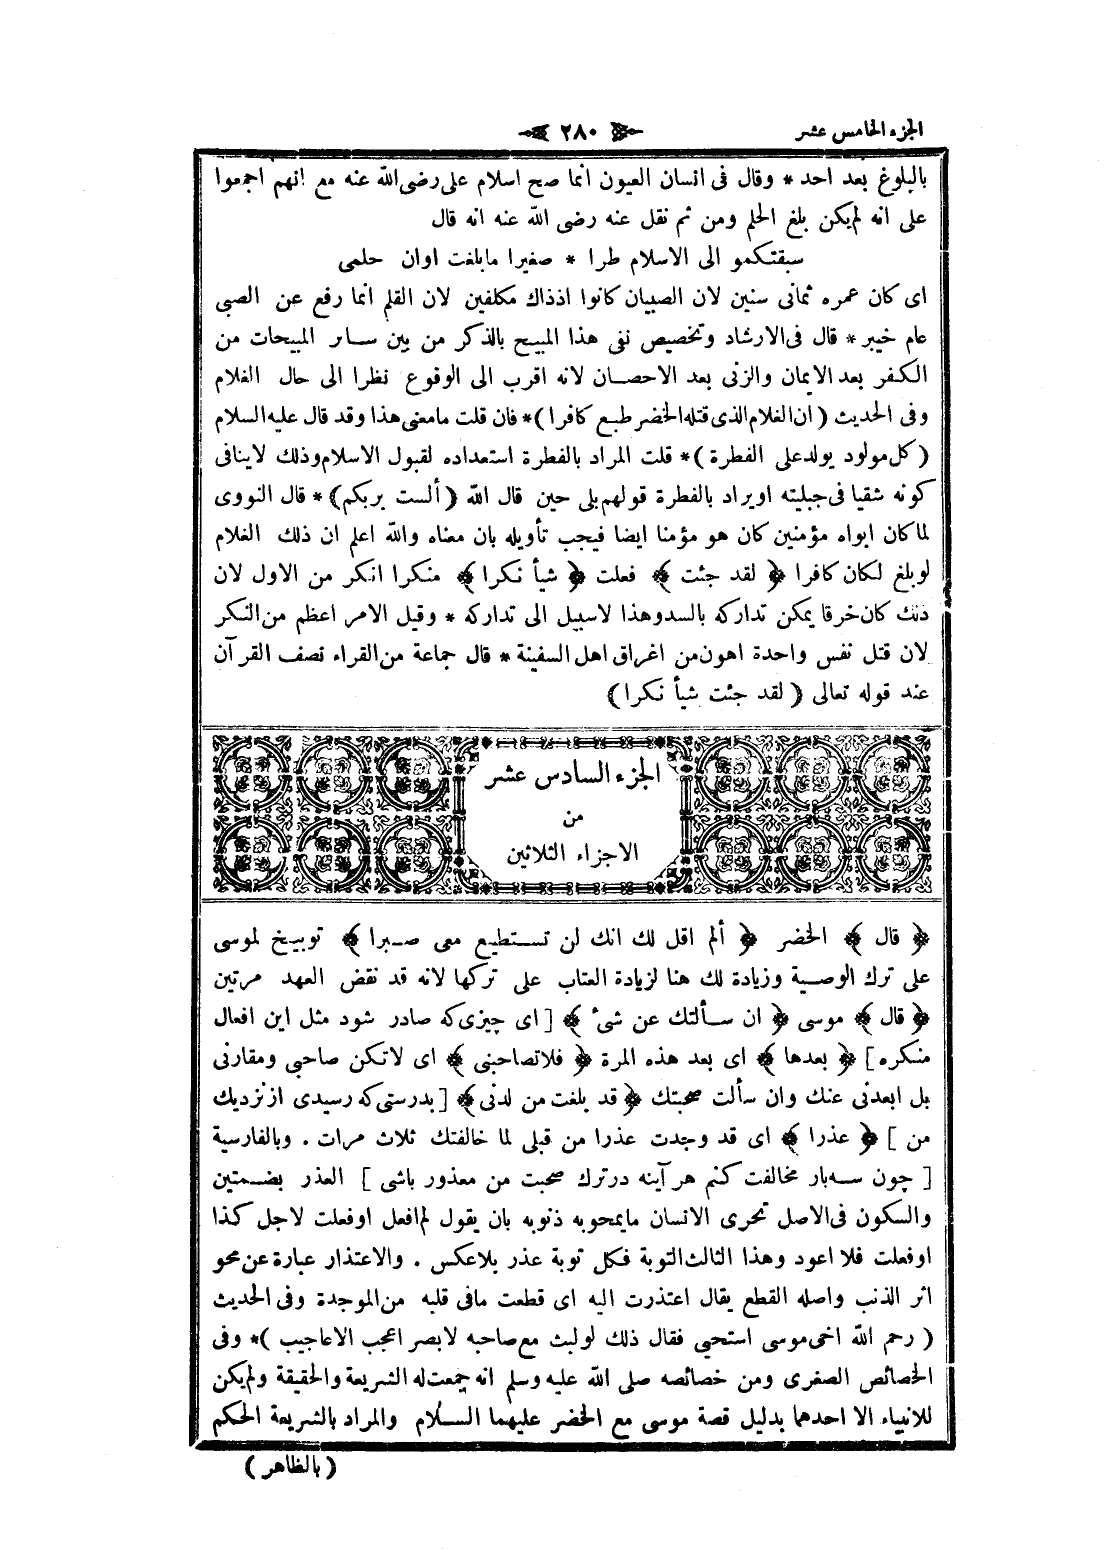 الجزء الخامس عشر
٢٨٠
بالبلوغ بعد احد * وقال فى انسان العيون انما صح اسلام على رضى الله عنه مع انهم اجمعوا
على انه لم يكن بلغ الحلم ومن ثم نقل عنه رضى الله عنه انه قال
سبقتكمو الى الاسلام طرا * صغيرا مابلغت اوان حلمى
اى كان عمره ثمانى سنين لان الصبيان كانوا اذذاك مكلفين لان القلم انما رفع عن الصبى
عام خيبر * قال فى الارشاد وتخصيص نفى هذا المبيح بالذكر من بين سائر المبيحات من
الكفر بعد الايمان والزنى بعد الاحصان لانه اقرب الى الوقوع نظرا الى حال الغلام
وفى الحديث (ان الغلام الذى قتله الخضر طبع كافرا)* فان قلت مامعنى هذا وقد قال عليه السلام
(كل مولود يولد على الفطرة)* قلت المراد بالفطرة استعداده لقبول الاسلام وذلك لاينافى
كونه شقيا فى جبليته اويراد بالفطرة قولهم بلى حين قال الله (ألست بربكم)* قال النووى
لما كان ابواه مؤمنين كان هو مؤمنا ايضا فيجب تأويله بان معناه والله اعلم ان ذلك الغلام
لوبلغ لكان كافرا ﴿ لقد جئت ﴾ فعلت ﴿ شيأ نكرا ﴾ منكرا انكر من الاول لان
ذلك كان خرقا يمكن تداركه بالسد وهذا لاسبيل الى تداركه * وقيل الامر اعظم من النكر
لان قتل نفس واحدة اهون من اغراق اهل السفينة * قال جماعة من القراء نصف القرآن
عند قوله تعالى (لقد جئت شيأ نكرا)
الجزء السادس عشر
من
الاجزاء الثلاثين
﴿ قال ﴾ الخضر ﴿ ألم اقل لك انك لن تستطيع معى صبرا ﴾ توبيخ لموسى
على ترك الوصية وزيادة لك هنا لزيادة العتاب على تركها لانه قد نقض العهد مرتين
﴿ قال ﴾ موسى ﴿ ان سألتك عن شىء ﴾ [اى چيزى كه صادر شود مثل اين افعال
منكره] ﴿ بعدها ﴾ اى بعد هذه المرة ﴿ فلاتصاحبنى ﴾ اى لاتكن صاحبى ومقارنى
بل ابعدنى عنك وان سألت صحبتك ﴿ قد بلغت من لدنى ﴾ [بدرستى كه رسيدى از نزديك
من] ﴿ عذرا ﴾ اى قد وجدت عذرا من قبلى لما خالفتك ثلاث مرات . وبالفارسية
[چون سه بار مخالفت كنم هر آينه در ترك صحبت من معذور باشى] العذر بضمتين
والسكون فى الاصل تحرى الانسان مايمحوبه ذنوبه بان يقول لم افعل اوفعلت لاجل كذا
اوفعلت فلا اعود وهذا الثالث التوبة فكل توبة عذر بلاعكس . والاعتذار عبارة عن محو
اثر الذنب واصله القطع يقال اعتذرت اليه اى قطعت مافى قلبه من الموجدة وفى الحديث
(رحم الله اخى موسى استحيى فقال ذلك لولبث مع صاحبه لابصر اعجب الاعاجيب)* وفى
الخصائص الصغرى ومن خصائصه صلى الله عليه وسلم انه جمعت له الشريعة والحقيقة ولم يكن
للانبياء الا احدهما بدليل قصة موسى مع الخضر عليهما السلام والمراد بالشريعة الحكم
(بالظاهر)